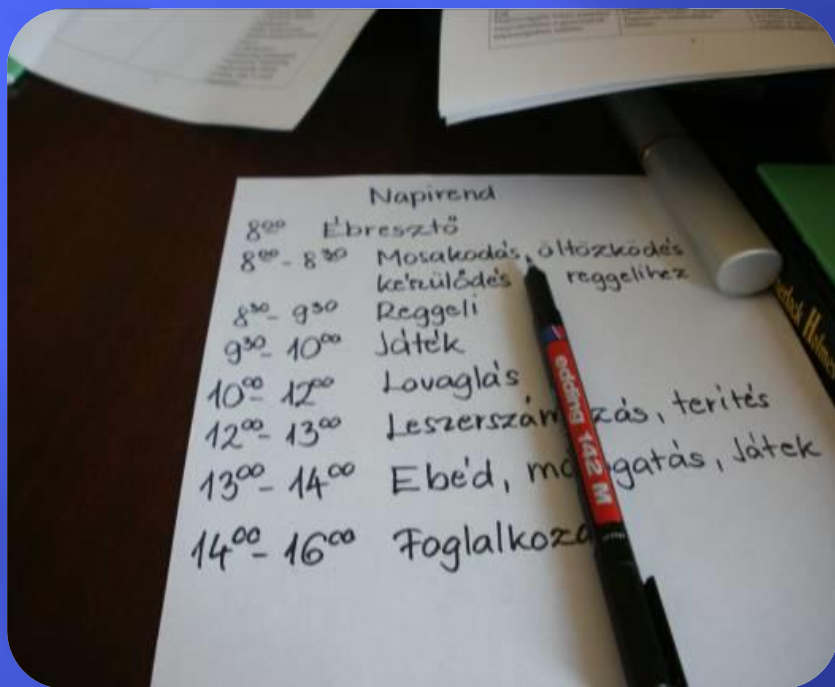 Napirend
8⁰⁰ Ébresztő
8⁰⁰ - 8³⁰ Mosakodás, öltözködés
készülődés reggelihez
8³⁰ - 9³⁰ Reggeli
9³⁰ - 10⁰⁰ Játék
10⁰⁰ - 12⁰⁰ Lovaglás
12⁰⁰ - 13⁰⁰ Leszerszám zás, terités
13⁰⁰ - 14⁰⁰ Ebéd, mo gatás, Játék
14⁰⁰ - 16⁰⁰ Foglalkozá
edding 142 M
Holmes